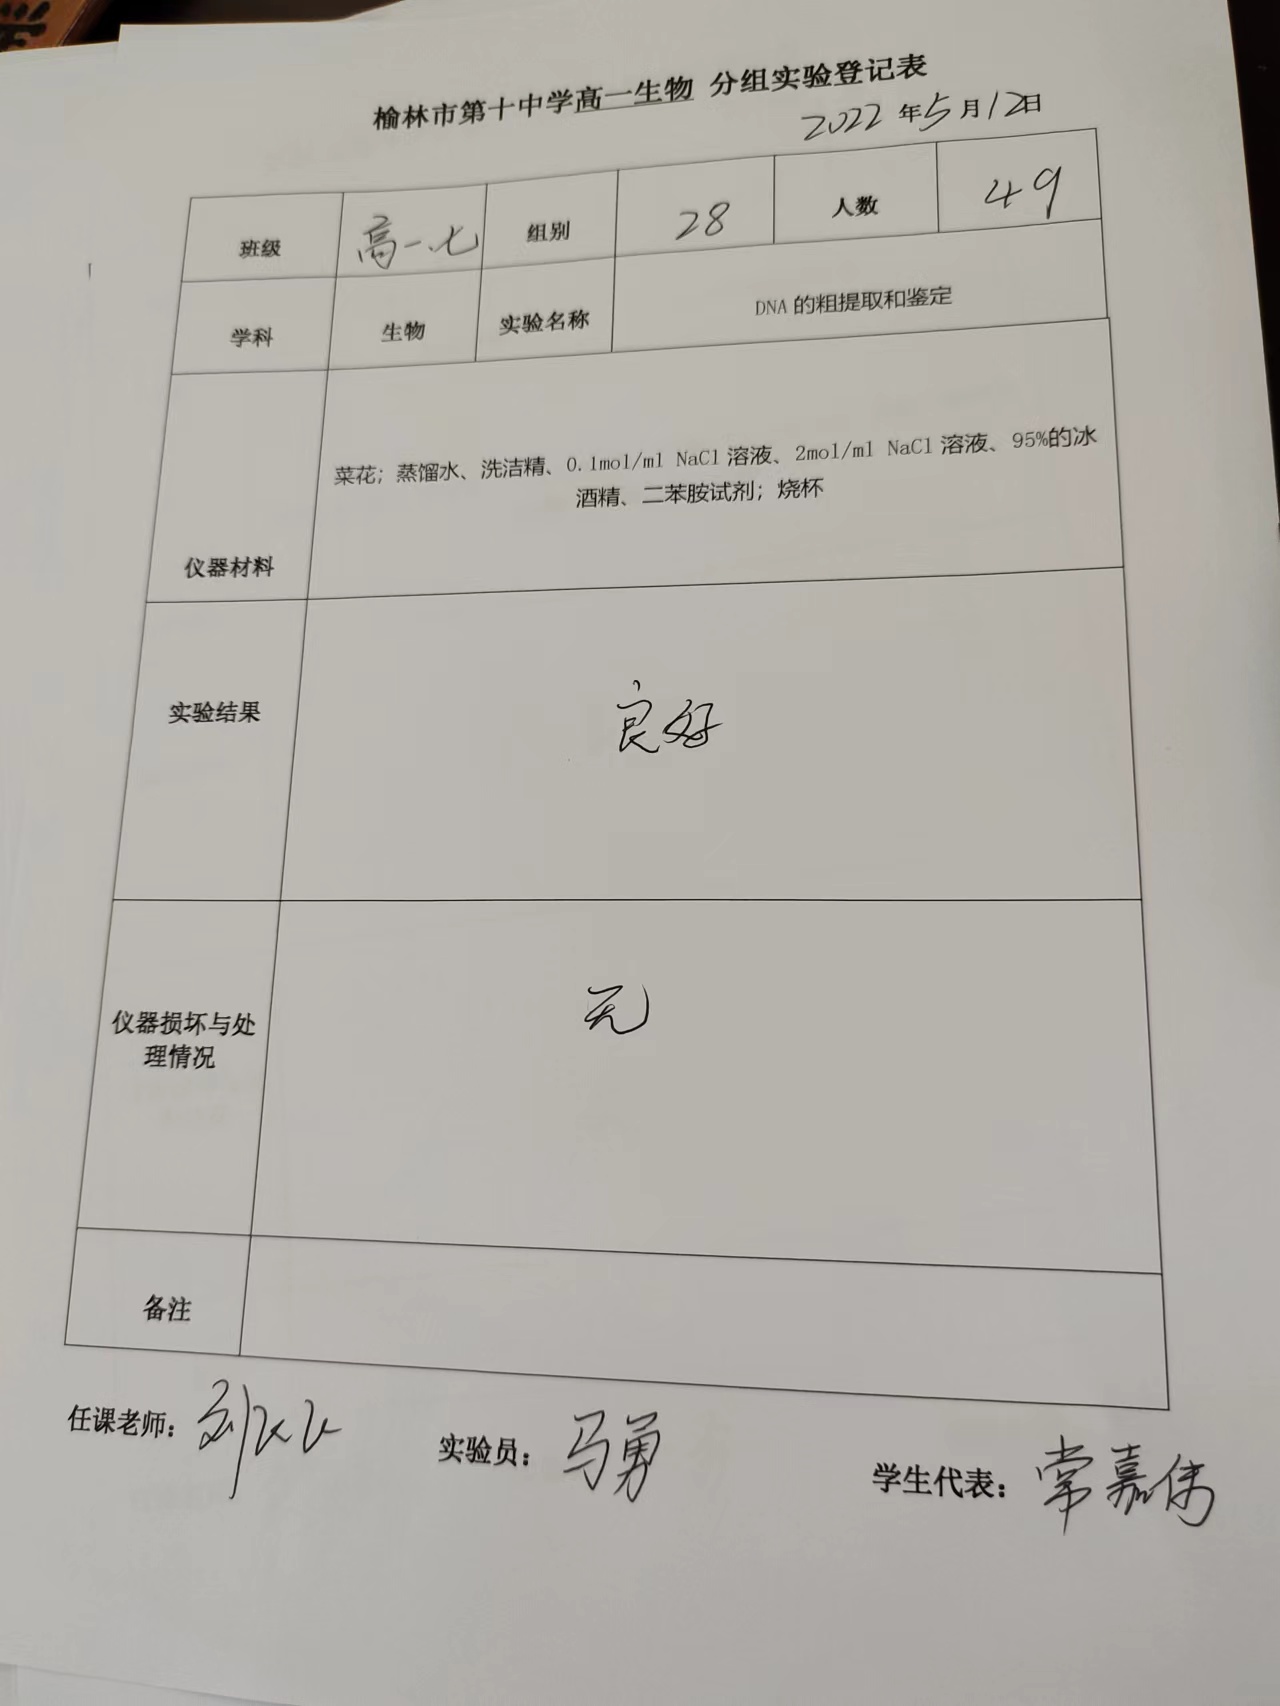 榆林市第十中学高一生物 分组实验登记表
2022年5月12日
班级 高一.七 组别 28 人数 49
学科 生物 实验名称 DNA的粗提取和鉴定
菜花；蒸馏水、洗洁精、0.1mol/ml NaCl溶液、2mol/ml NaCl溶液、95%的冰
酒精、二苯胺试剂；烧杯
仪器材料
实验结果 良好
仪器损坏与处
理情况
无
备注
任课老师：刘
实验员：马勇
学生代表：常嘉伟